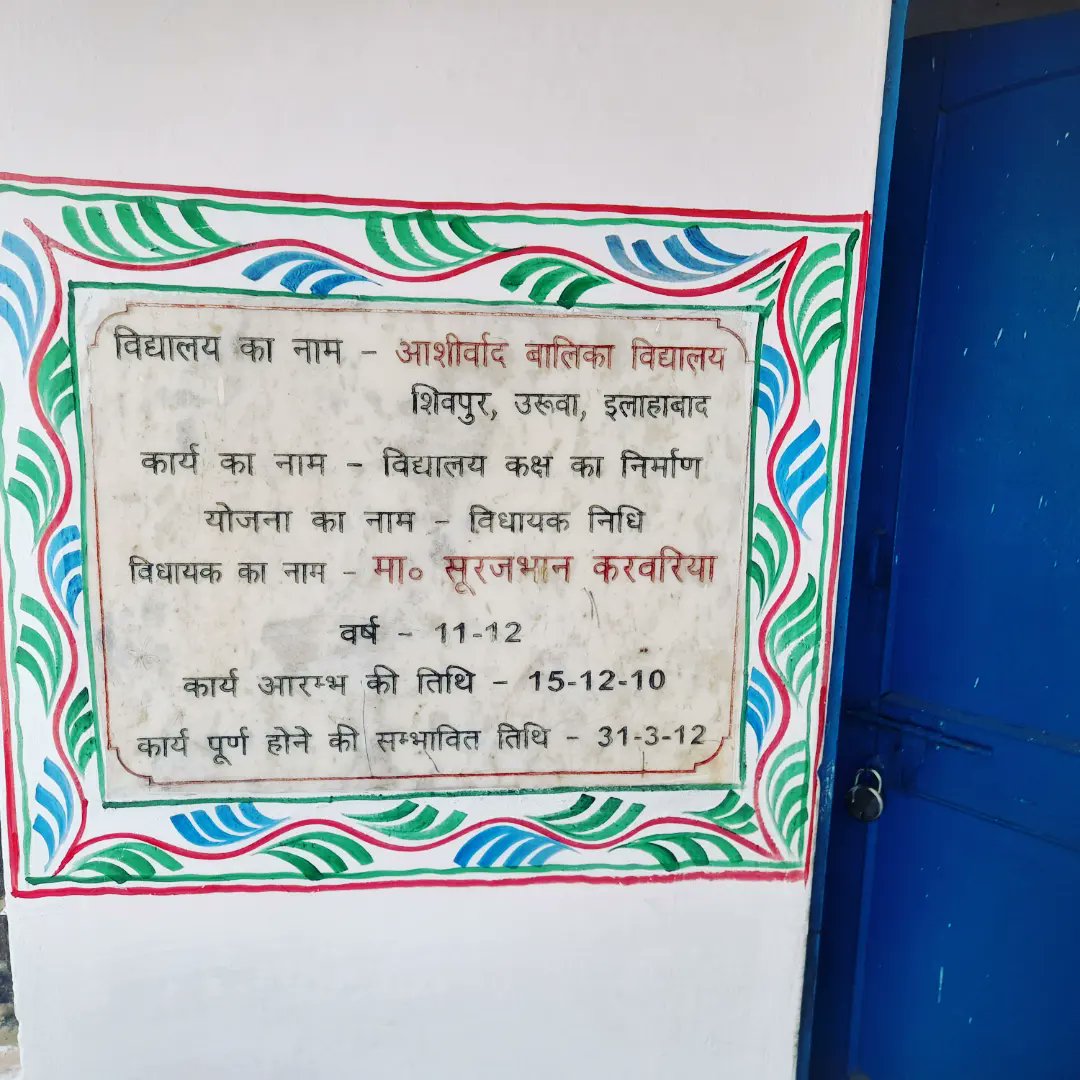 विद्यालय का नाम - आशीर्वाद बालिका विद्यालय
शिवपुर, उरूवा, इलाहाबाद
कार्य का नाम - विद्यालय कक्ष का निर्माण
योजना का नाम - विधायक निधि
विधायक का नाम - मा० सूरजभान करवरिया
वर्ष - 11-12
कार्य आरम्भ की तिथि - 15-12-10
कार्य पूर्ण होने की सम्भावित तिथि - 31-3-12